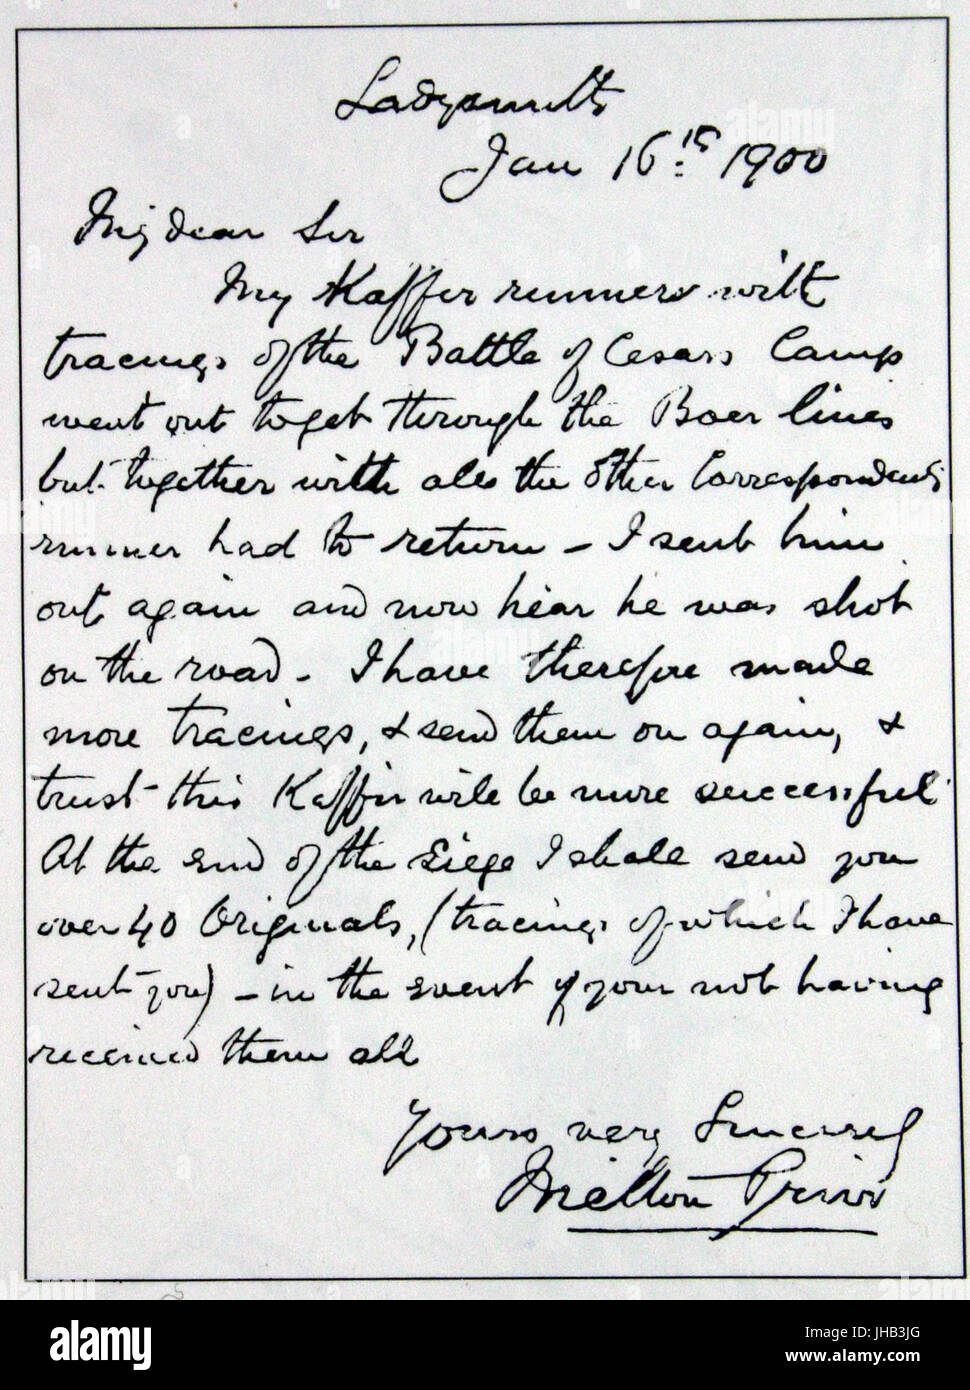 Ladysmith
Jan 16th 1900
My dear Sir
My Kaffer runners with
tracings of the Battle of Cesars Camp
went out to get through the Boer lines
but together with all the other Correspondents
runner had to return – I sent him
out again and now hear he was shot
on the road – I have therefore made
more tracings, & send them on again, &
trust this Kaffir will be more successful
At the end of the Siege I shall send you
over 40 Originals, (tracings of which I have
sent you) – in the event of your not having
received them all
Yours very Sincerely
Melton Prior
alamy
a
alamy
Image ID: JHB3JG
www.alamy.com